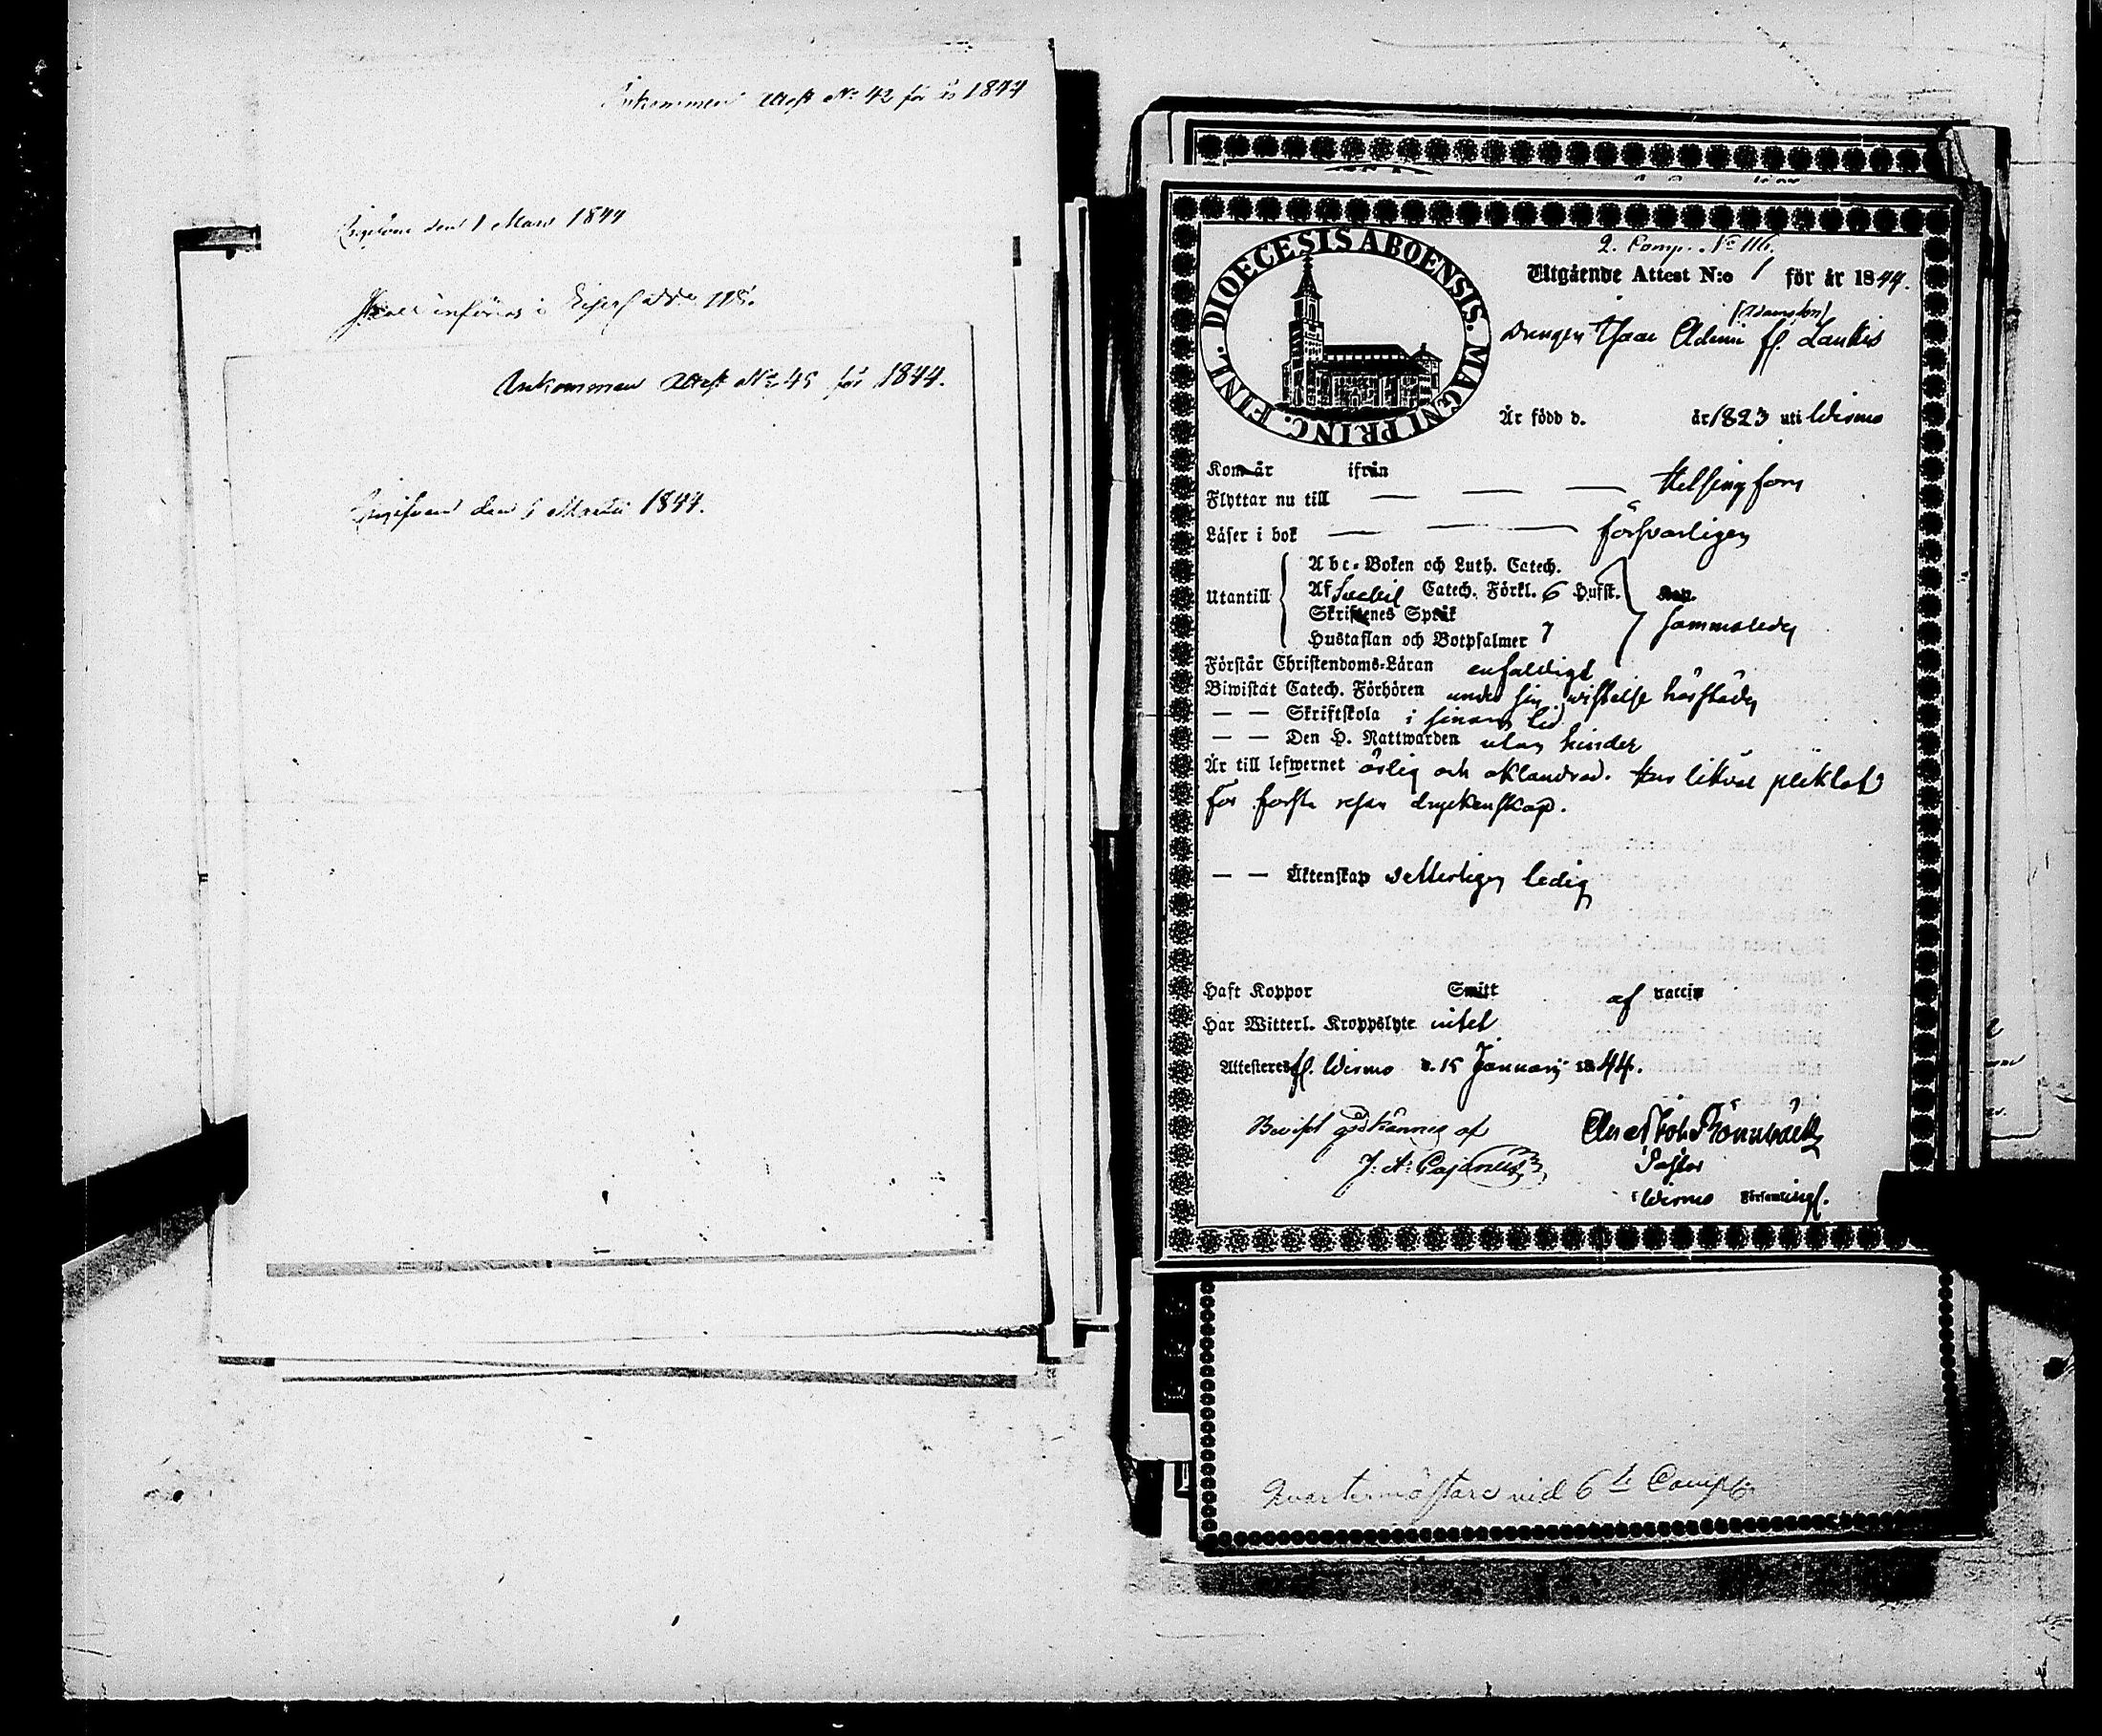 Ankommen Attest No 42 för år 1844
Ingifven den 1 Mars 1844
införas i No 115.
Ankommen Attest No 45 för 1844.
Ingifven den 1 Martii 1844.
DIOECESIS ABOENSIS. MAGNI PRINC. FINL.
2. Comp. No 116.
Utgående Attest N:o 1 för år 1844.
(Adamsson)
Drengen Isaac Adam fl. Laukis
Är född d. år 1823 uti Wirmo
Kom år ifrån
Flyttar nu till — — — Helsingfors
Läser i bok — — försvarligen
Utantill
Abc-Boken och Luth. Catech.
Af Svebil Catech. Förkl. 6 Hufst.
Skriftenes Språk
Hustaflan och Botpsalmer 7
sammaledes
Förstår Christendoms-Läran enfaldigt
Biwistat Catech. Förhören under sin vistelse härstädes
— — Skriftskola i sinom tid
— — Den H. Nattwarden utan hinder
Är till lefwernet ärlig och oklandrad. Har likväl pliktat
för första resan dryckenskap.
— — Äktenskap vetterligen ledig
Haft Koppor Smitt af vaccin
Har Witterl. Kroppslyte intet
Attesteres fl. Wirmo d. 15 Januarij 1844.
Beviset godkännes af
J: A: Cajanus
Rönnbäck
Pastor
i Wirmo Församlingf.
Quartermästare vid 6te Comp.